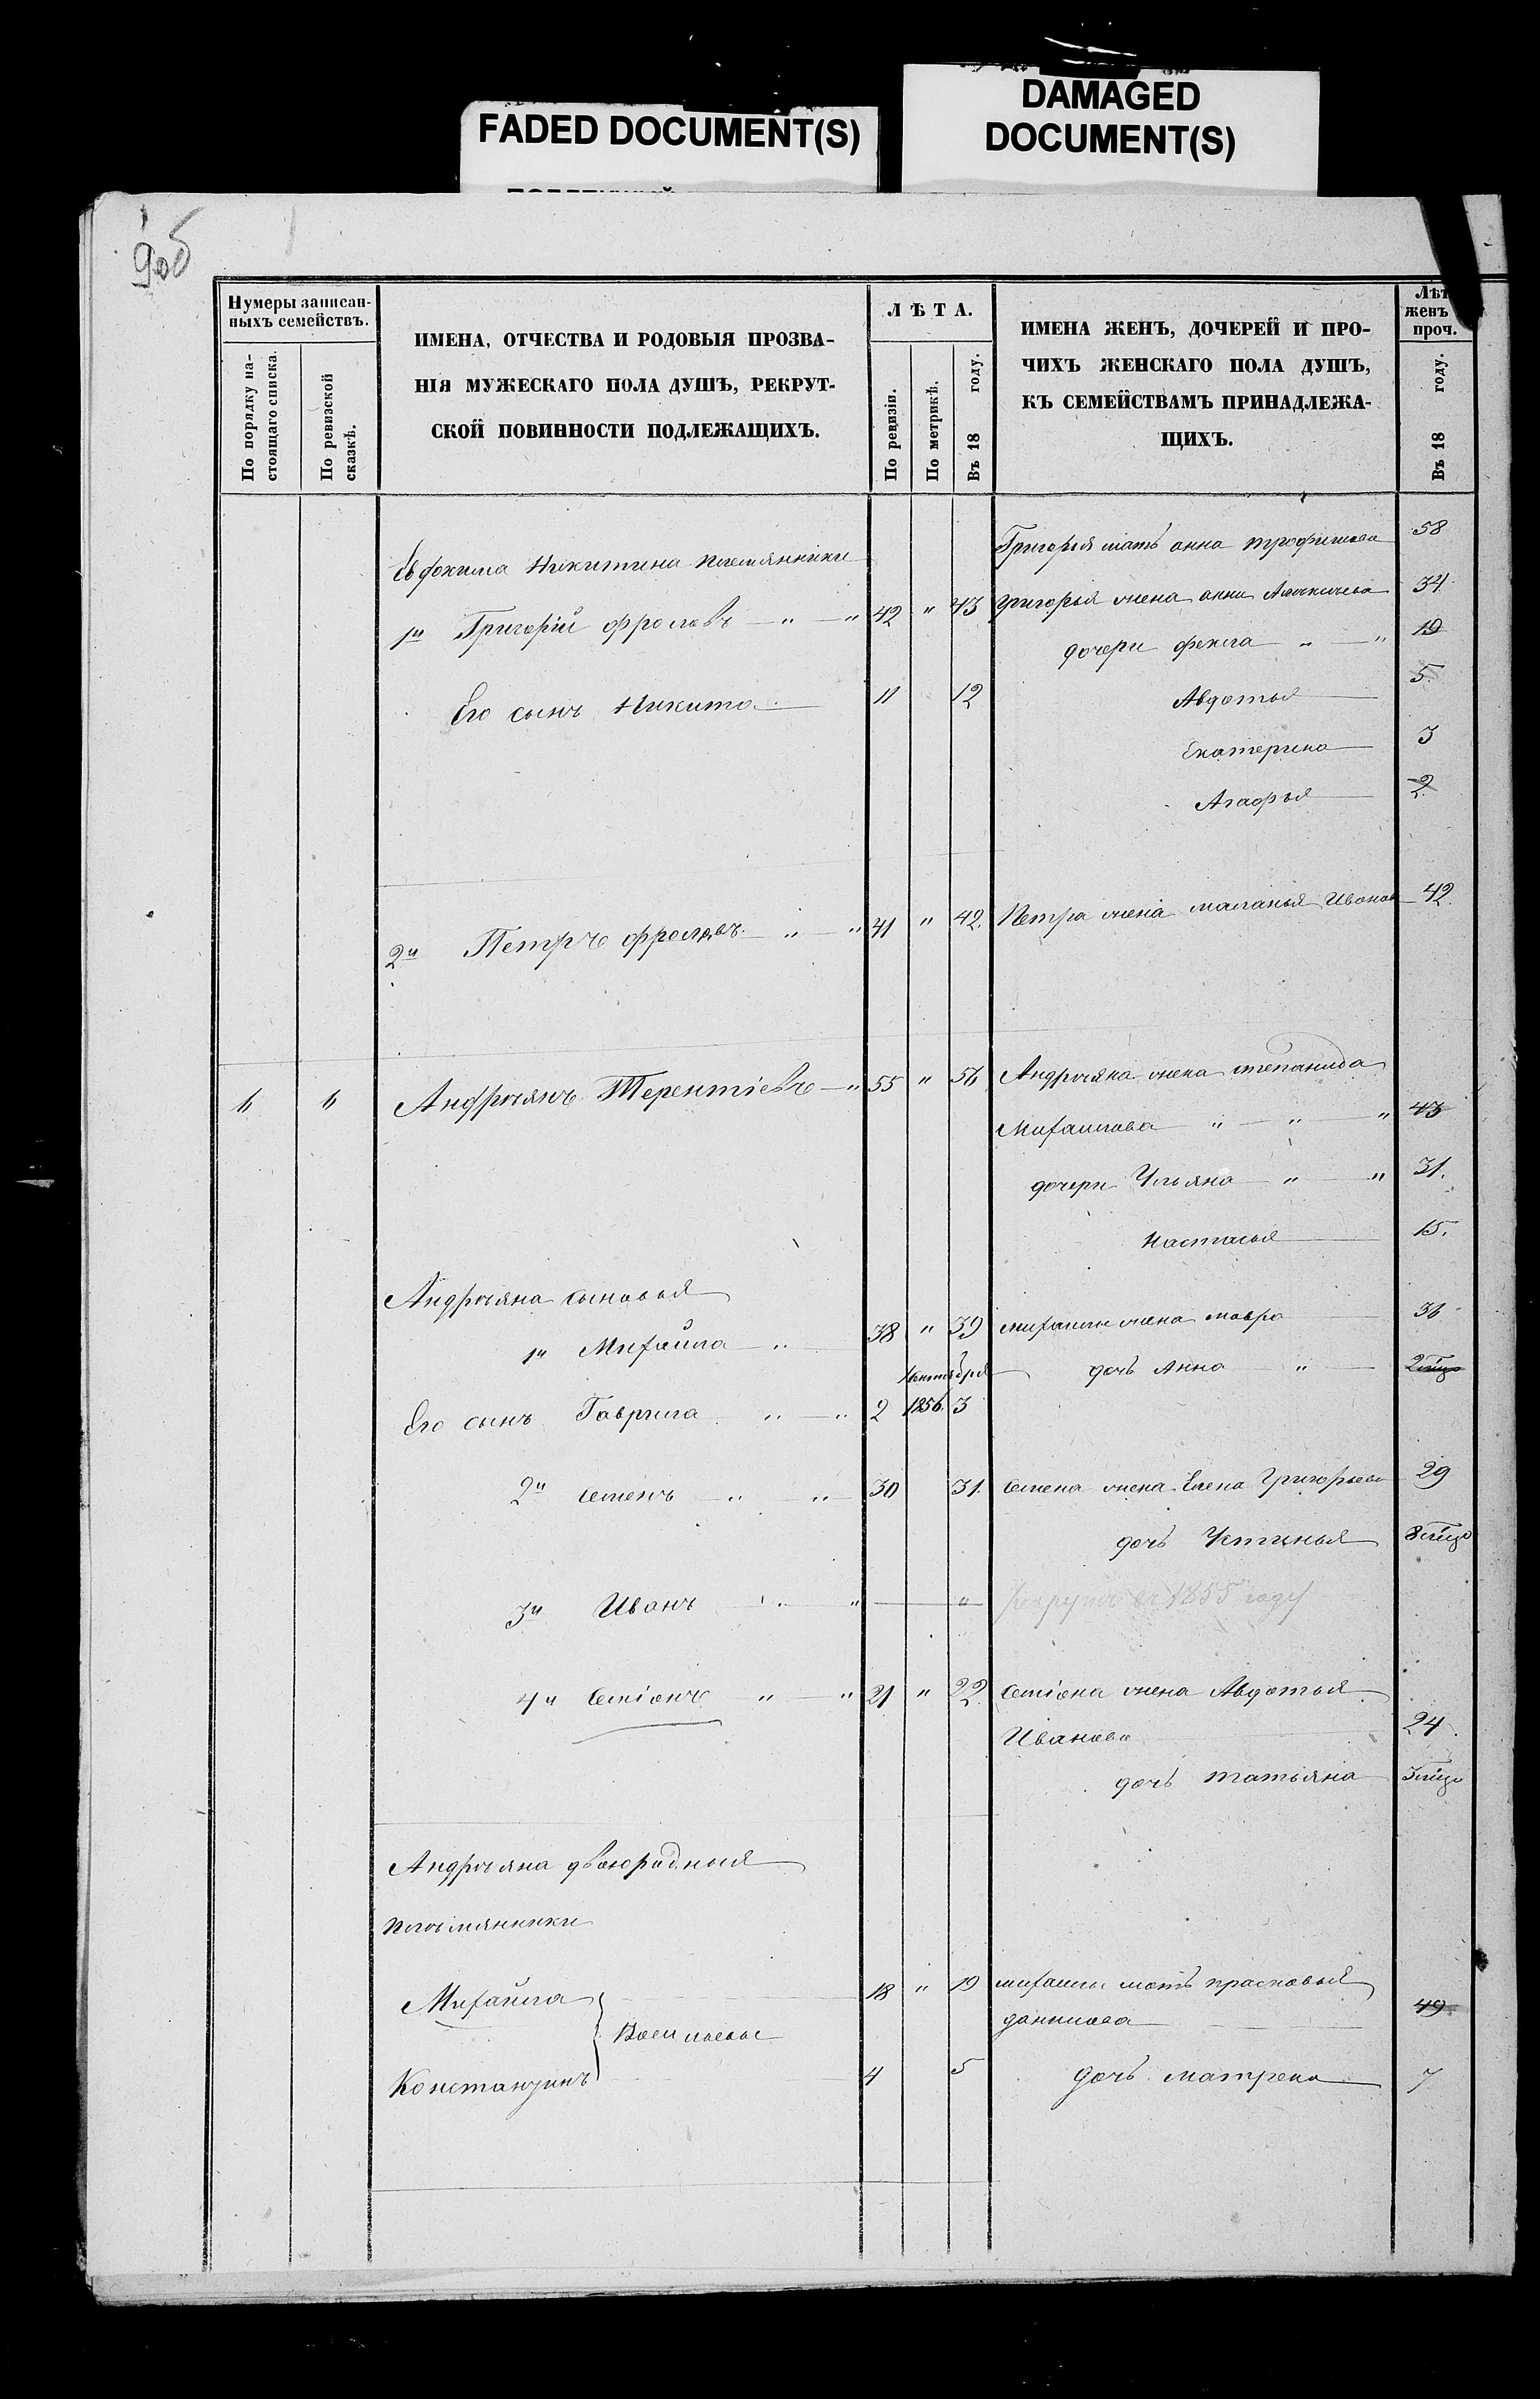 FADED DOCUMENT(S)
DAMAGED
DOCUMENT(S)
9об
Нумеры записан-
ныхъ семействъ.
По порядку на-
стоящаго списка.
По ревизской
сказкѣ.
ИМЕНА, ОТЧЕСТВА И РОДОВЫЯ ПРОЗВА-
НІЯ МУЖЕСКАГО ПОЛА ДУШЪ, РЕКРУТ-
СКОЙ ПОВИННОСТИ ПОДЛЕЖАЩИХЪ.
ЛѢТА.
По ревизіи.
По метрикѣ.
Въ 18 году.
ИМЕНА ЖЕНЪ, ДОЧЕРЕЙ И ПРО-
ЧИХЪ ЖЕНСКАГО ПОЛА ДУШЪ,
КЪ СЕМЕЙСТВАМЪ ПРИНАДЛЕЖА-
ЩИХЪ.
Лѣт
женъ
проч.
Въ 18 году.
Григорья мать анна трофимова 58
Евдокима Никитина племянники
1й Григорій фроловъ 42 " 43 григорья жена анна 34
дочери фекла 19
Его сынъ Никита 11 12 Авдотья 5
Екатерина 3
Агафья 2
2й Петръ фроловъ 41 " 42 Петра жена маланья Иванов 42
6 6 Андреянъ Терентіевъ 55 " 56 Андреяна жена степанида
Михайлова 43
дочери Ульяна 31.
Настасья 15.
Андреяна сыновья
1й Михайла 38 " 39 михайлы жена мавра 36
дочь Анна
Его сынъ Гаврила 2 1856 3
2й семенъ 30 31. семена жена Елена Григорьева 29
дочь Устинья
3й Иванъ " рекрутъ въ 1855 году
4й Семіонъ 21 " 22 семіона жена Авдотья
Иванова 24
дочь татьяна
Андреяна двоюродныя
племянники
Михайла 18 " 19 михайлы мать прасковья
Васильевы
данилова 49
Константинъ 4 5 дочь матрена 7